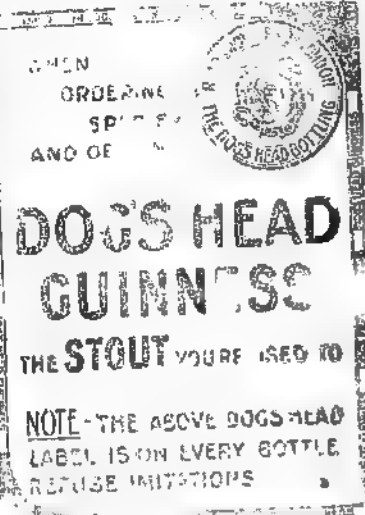 WHEN
ORDERING
SPECIFY
AND GE
THE DOGS HEAD BOTTLING
DOGS HEAD
GUINNESS
THE STOUT YOURE USED TO
NOTE - THE ABOVE DOGS HEAD
LABEL IS ON EVERY BOTTLE
REFUSE IMITATIONS